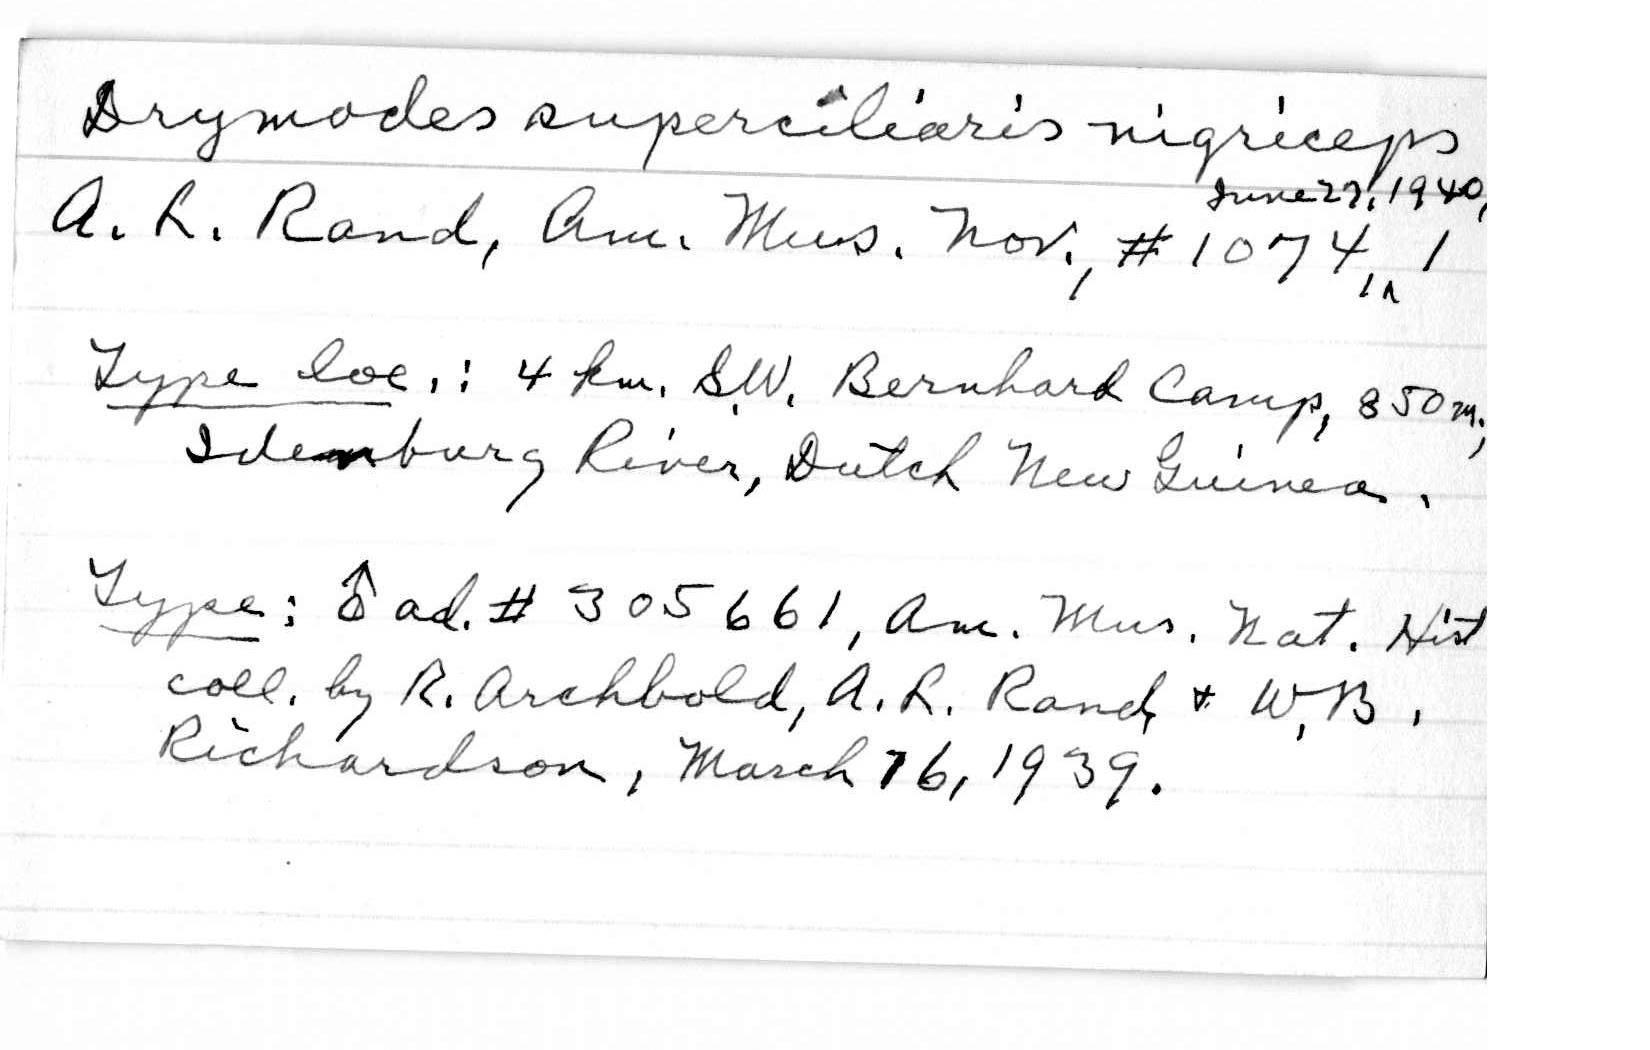 Drymodes superciliaris nigriceps
A. L. Rand, Am. Mus. Nov., #1074, June 27, 1940, 1
Type loc.: 4 km. S.W. Bernhard Camp, 850 m.,
Idenburg River, Dutch New Guinea.
Type: ♂ ad. # 305661, Am. Mus. Nat. Hist
coll. by R. Archbold, A. L. Rand, + W. B.
Richardson, March 16, 1939.